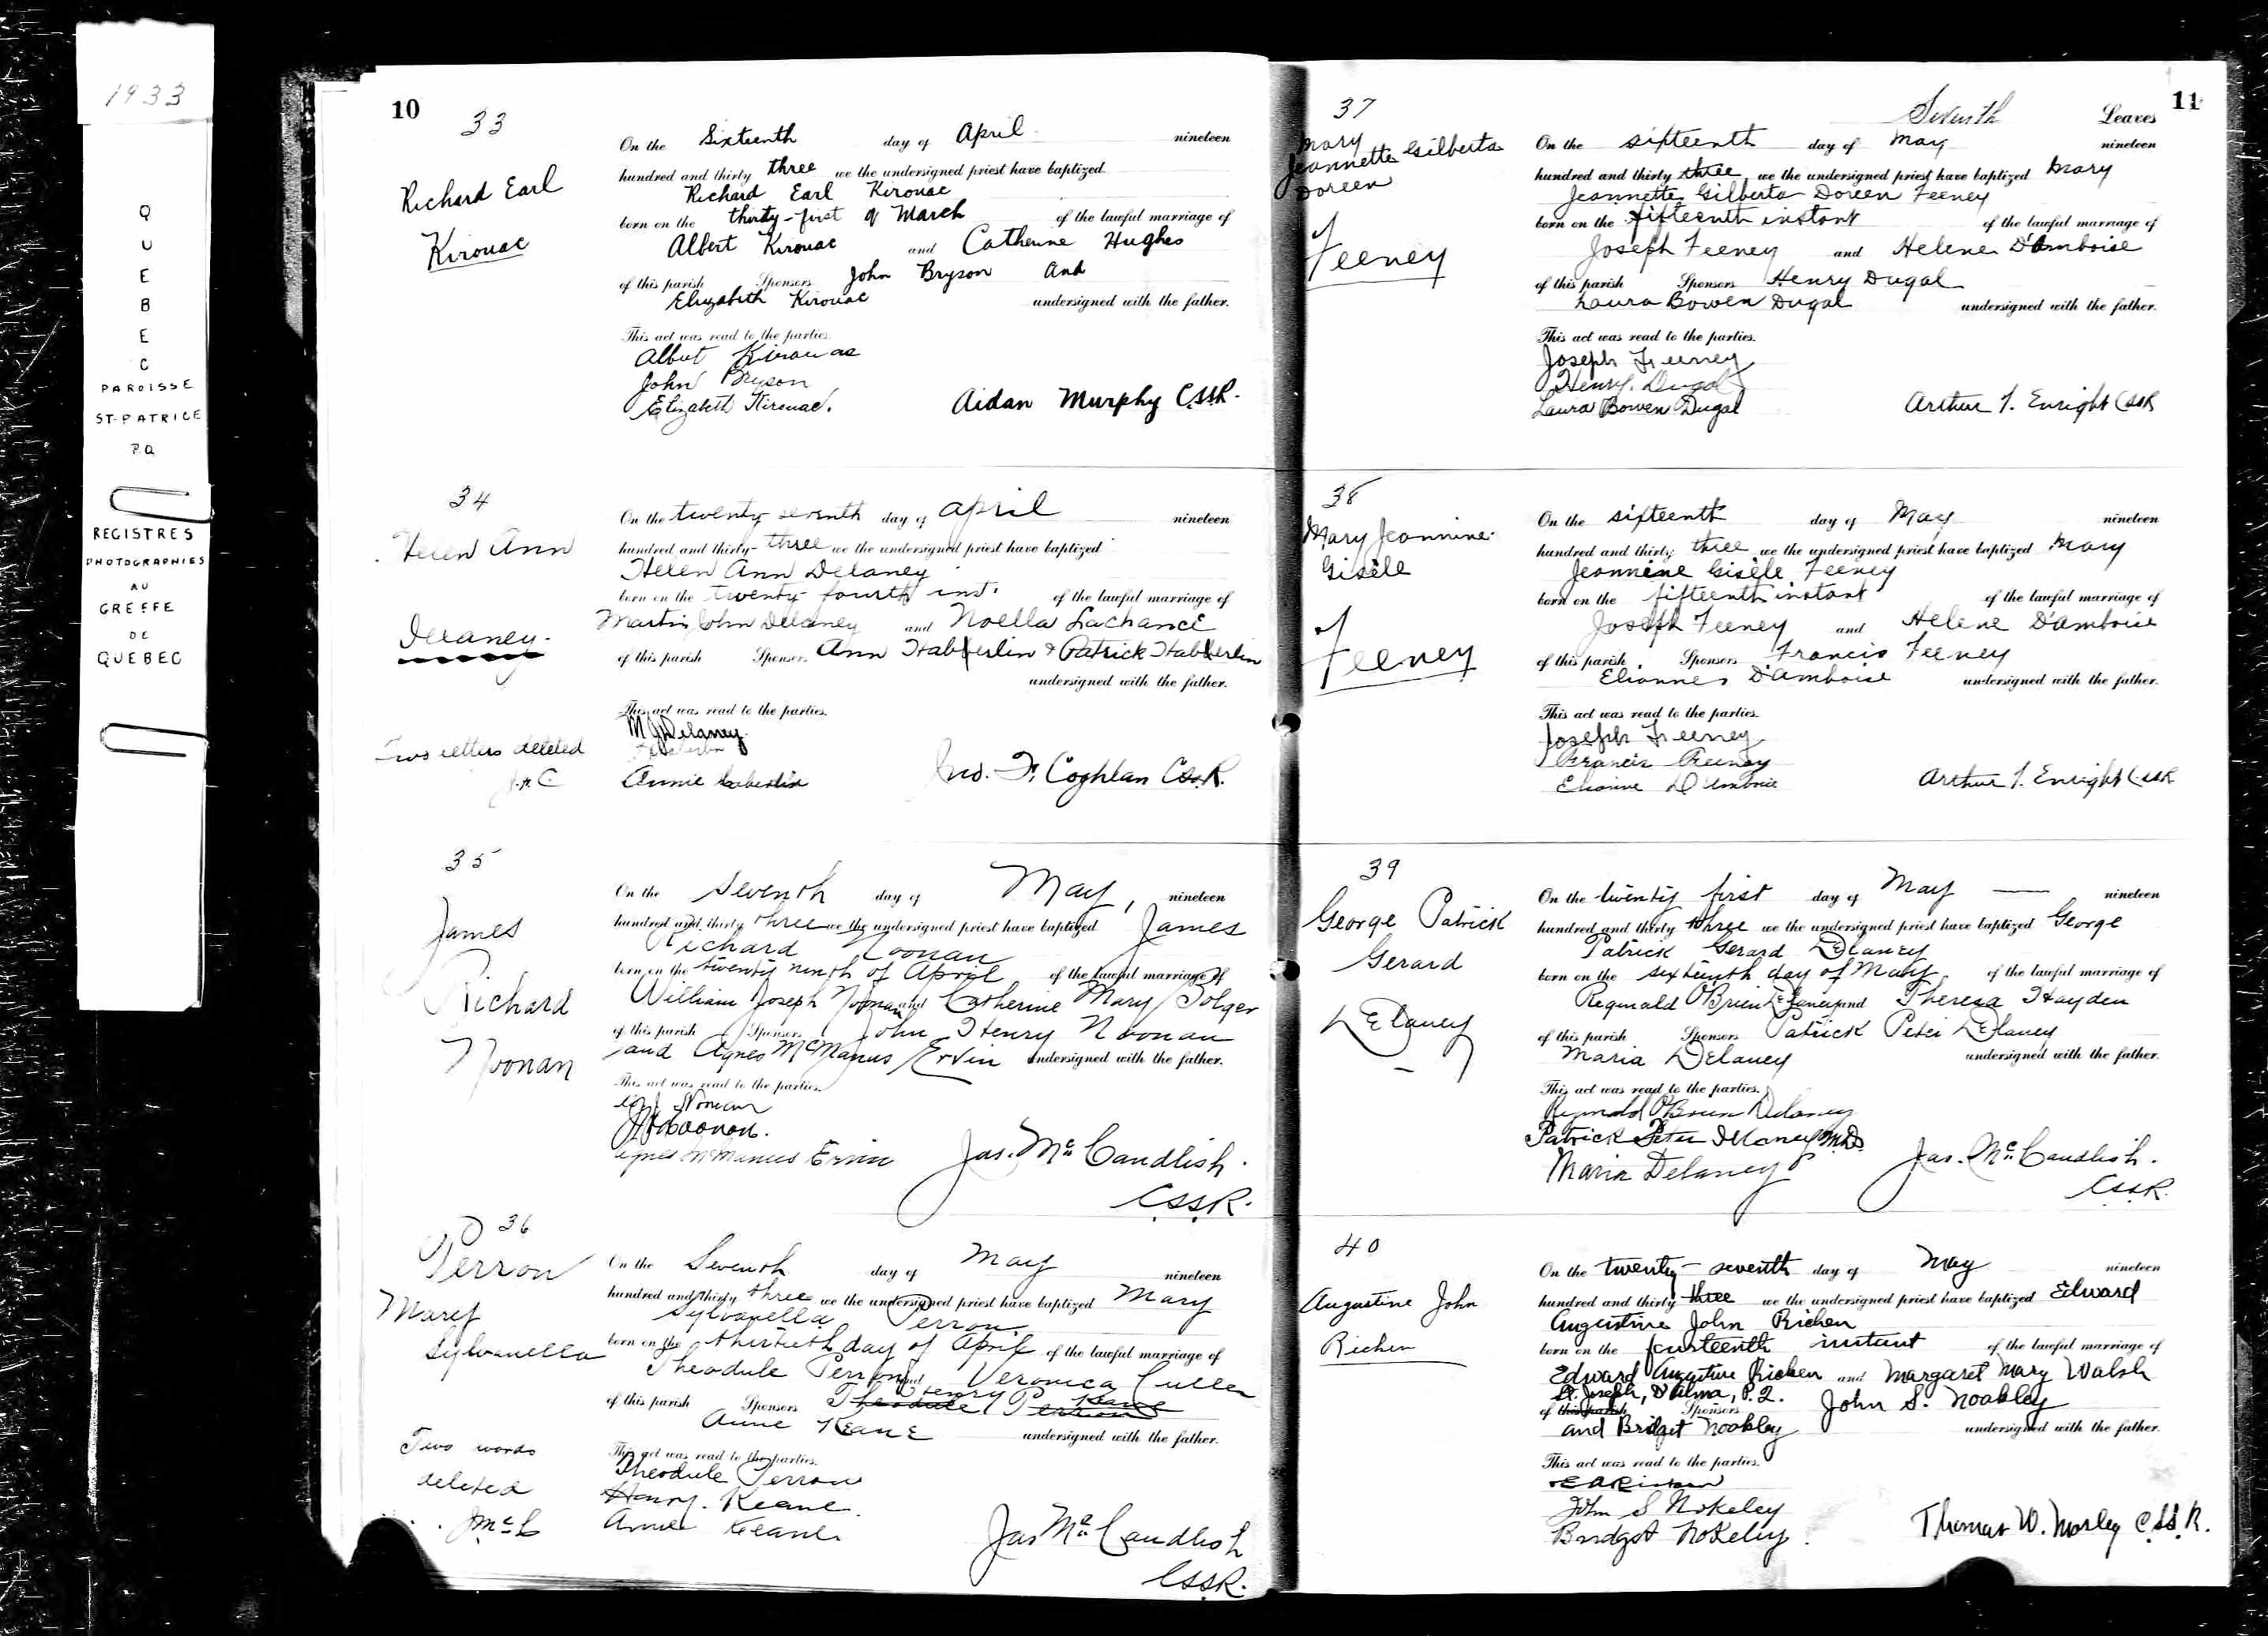 1933
QUEBEC
PAROISSE
ST-PATRICE
P.Q
REGISTRES
PHOTOGRAPHIES
AU
GREFFE
DE
QUEBEC
10
33
Richard Earl
Kirouac
On the Sixteenth day of April nineteen
hundred and thirty three we the undersigned priest have baptized
Richard Earl Kirouac
born on the thirty-first of March of the lawful marriage of
Albert Kirouac and Catherine Hughes
of this parish Sponsors John Bryson And
Elizabeth Kirouac undersigned with the father.
This act was read to the parties.
Albert Kirouac
John Bryson
Elizabeth Kirouac.
Aidan Murphy C.SS.R.
34
Helen Ann
Delaney.
Two letters deleted
On the twenty seventh day of april nineteen
hundred and thirty-three we the undersigned priest have baptized
Helen Ann Delaney
born on the twenty-fourth inst. of the lawful marriage of
Martin John Delaney and Noella Lachance
of this parish Sponsors Ann Habberlin & Patrick Habberlin
undersigned with the father.
This act was read to the parties.
M J Delaney.
Annie
Jno. F. Coghlan C.Ss.R.
35
James
Richard
Noonan
On the Seventh day of May, nineteen
hundred and thirty three we the undersigned priest have baptized James
Richard Noonan
born on the twenty ninth of April of the lawful marriage of
William Joseph Noonan and Catherine Mary Bolger
of this parish Sponsors John Henry Noonan
and Agnes McManus Ervin undersigned with the father.
This act was read to the parties.
W J Noonan
J H Noonan.
Agnes McManus Ervin
Jas. McCandlish.
C.SS.R.
36
Perron
Mary
Sylvanella
Two words
deleted
J McC
On the Seventh day of May nineteen
hundred and thirty three we the undersigned priest have baptized Mary
Sylvanella Perron
born on the thirtieth day of April of the lawful marriage of
Theodule Perron and Veronica Cullen
Henry Keane
of this parish Sponsors Theodule Perron
Anne Keane undersigned with the father.
This act was read to the parties.
Theodule Perron
Henry. Keane.
Anne Keane
Jas McCandlish
C.SS.R.
Seventh Leaves 11
37
Mary
Jeannette Gilberta
Doreen
Feeney
On the sixteenth day of May nineteen
hundred and thirty three we the undersigned priest have baptized Mary
Jeannette Gilberta Doreen Feeney
born on the fifteenth instant of the lawful marriage of
Joseph Feeney and Helene D'Amboise
of this parish Sponsors Henry Dugal
Laura Bowen Dugal undersigned with the father.
This act was read to the parties.
Joseph Feeney
Henry. Dugal
Laura Bowen Dugal
Arthur J. Enright CSSR
38
Mary Jeannine
Gisèle
Feeney
On the sixteenth day of May nineteen
hundred and thirty three we the undersigned priest have baptized Mary
Jeannine Gisèle Feeney
born on the fifteenth instant of the lawful marriage of
Joseph Feeney and Helene D'Amboise
of this parish. Sponsors Francis Feeney
Elianne D'Amboise undersigned with the father.
This act was read to the parties.
Joseph Feeney
Francis Feeney
D'Amboise
Arthur J. Enright CSSR
39
George Patrick
Gerard
Delaney
On the twenty first day of May nineteen
hundred and thirty three we the undersigned priest have baptized George
Patrick Gerard Delaney
born on the sixteenth day of May of the lawful marriage of
Reginald O'Brien Delaney and Theresa Hayden
of this parish Sponsors Patrick Peter Delaney
Maria Delaney undersigned with the father.
This act was read to the parties.
Reginald O'Brien Delaney
Patrick Peter Delaney M.D.
Maria Delaney
Jas. McCandlish.
C.SS.R.
40
Augustine John
Ricken
On the twenty-seventh day of May nineteen
hundred and thirty three we the undersigned priest have baptized Edward
Augustine John Ricken
born on the fourteenth instant of the lawful marriage of
Edward Augustine Ricken and Margaret Mary Walsh
St. Joseph, D'Alma, P.Q.
of this parish Sponsors John S. Noakley
and Bridget Noakley undersigned with the father.
This act was read to the parties.
E A Ricken
John S Nokeley
Bridget Nokeley.
Thomas W. Morley C.SS.R.